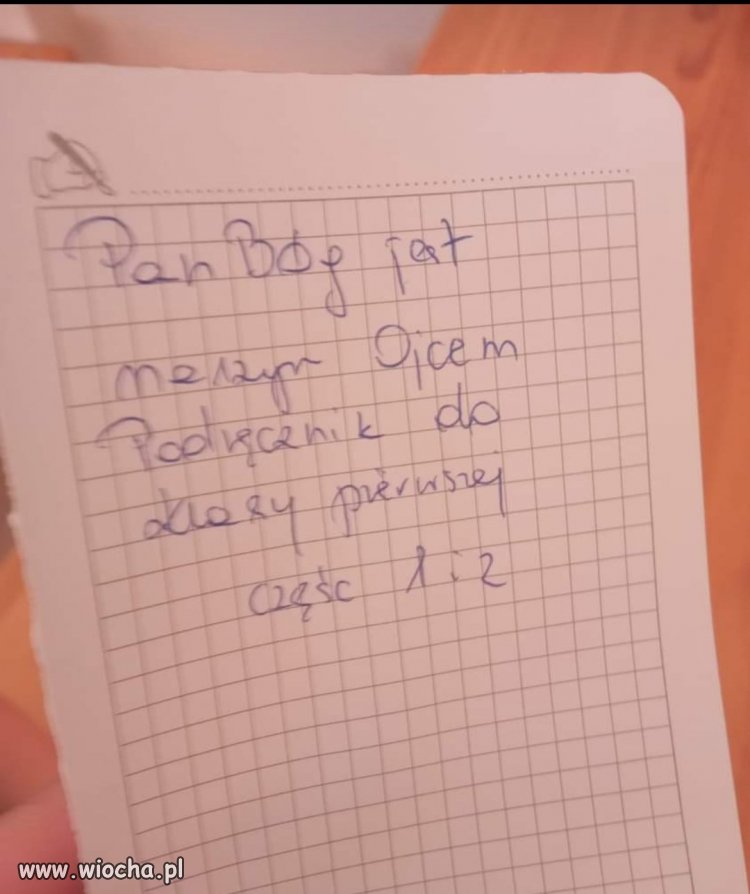 Pan Bóg jest
naszym Ojcem
Podręcznik do
klasy pierwszej
część 1 i 2
www.wiocha.pl